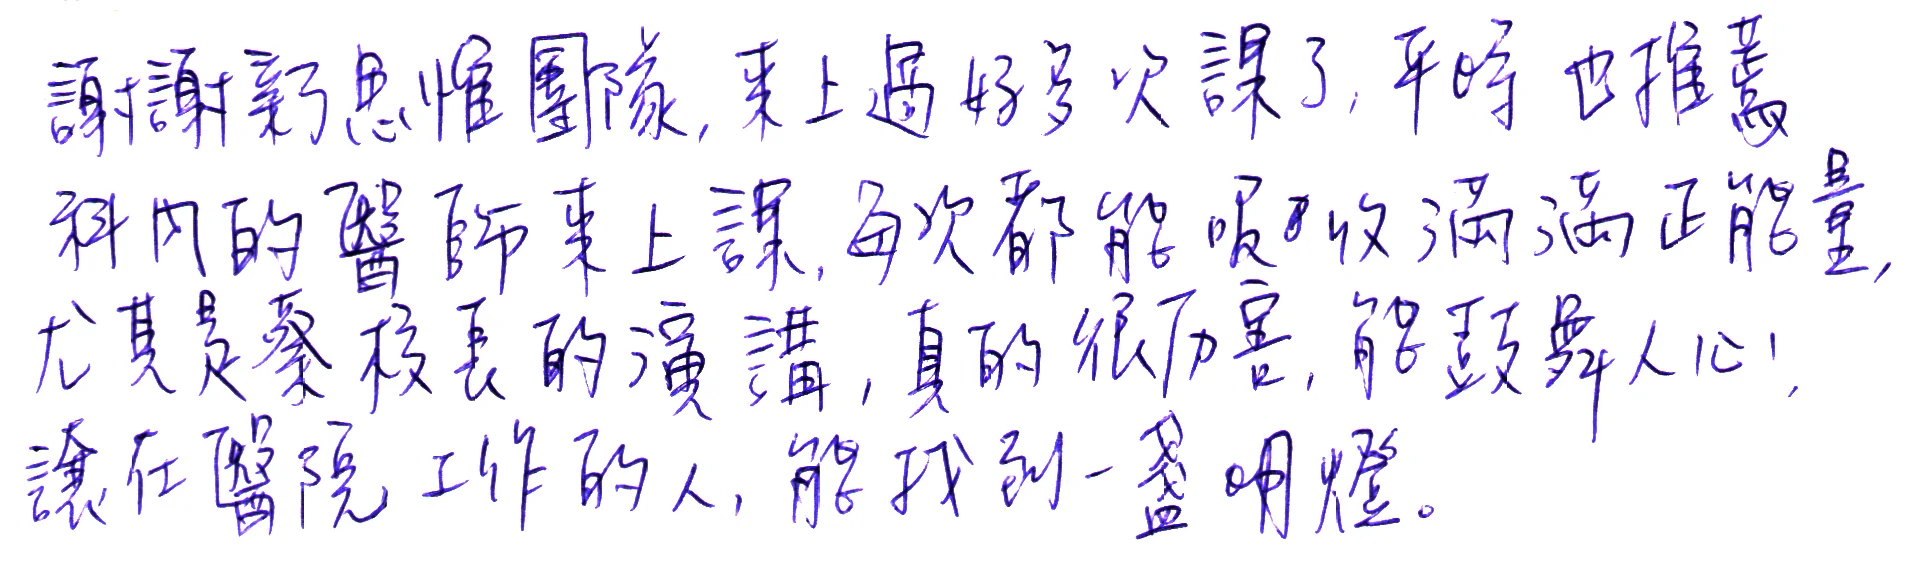 謝謝新思惟團隊,來上過好多次課了,平時也推薦
科內的醫師來上課,每次都能吸收滿滿正能量,
尤其是蔡校長的演講,真的很厉害,能鼓舞人心,
讓在醫院工作的人,能找到一盞明燈。